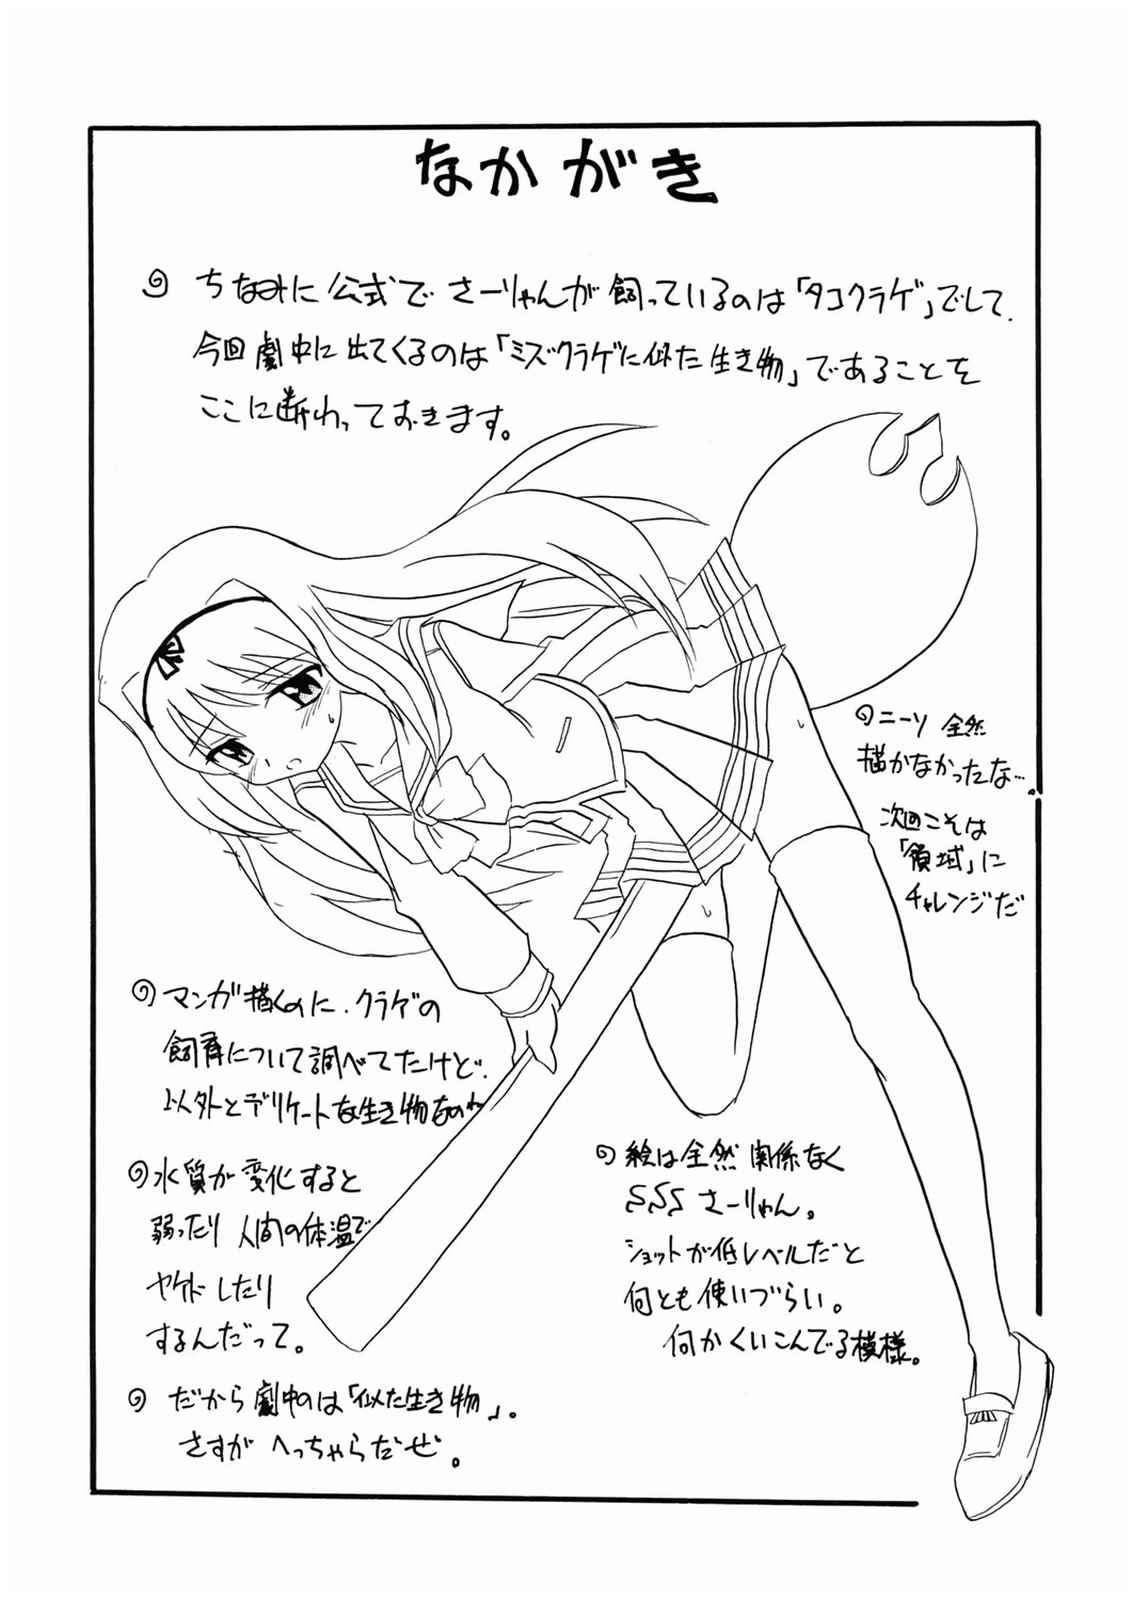 なかがき
ちなみに公式でさーりゃんが飼っているのは「タコクラゲ」でして、
今回劇中に出てくるのは「ミズクラゲに似た生き物」であることを
ここに断わっておきます。
ニーソ全然
描かなかったな…。
次回こそは
「領域」に
チャレンジだ
マンガ描くのに、クラゲの
飼育について調べてたけど、
以外とデリケートな生き物なのね
水質が変化すると
弱ったり人間の体温で
ヤケドしたり
するんだって。
だから劇中のは「似た生き物」。
さすがへっちゃらだぜ。
絵は全然関係なく
SSSさーりゃん。
ショットが低レベルだと
何とも使いづらい。
何かくいこんでる模様。